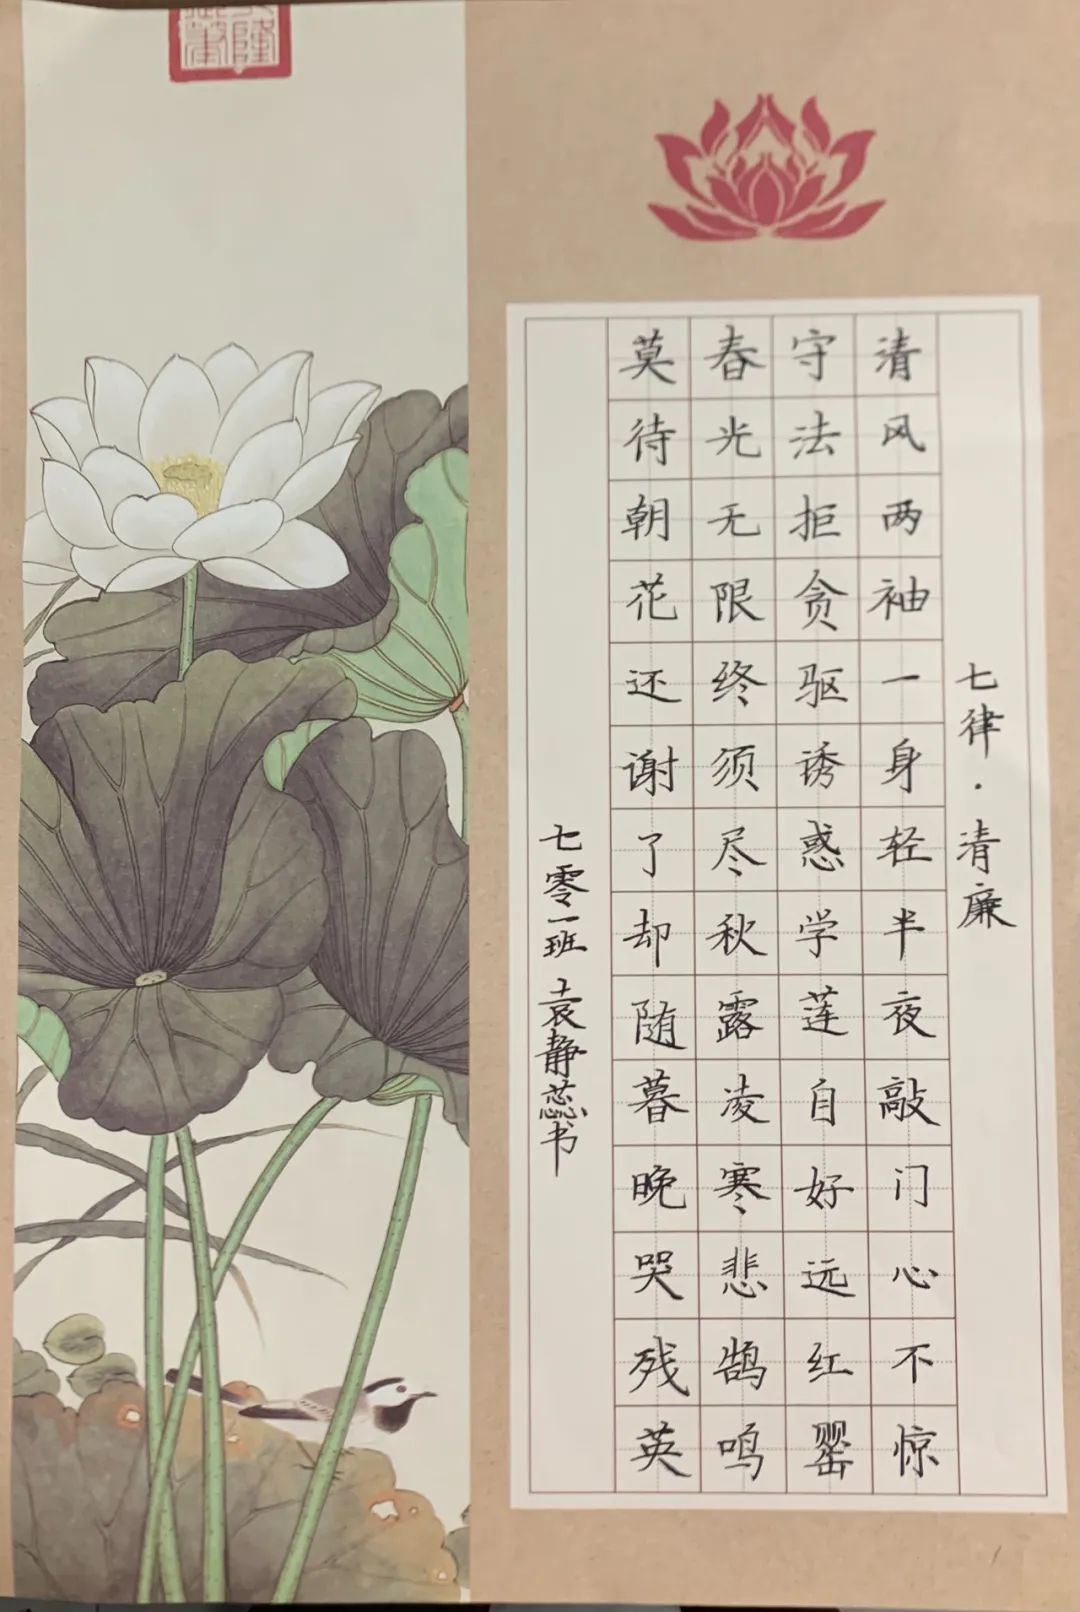 七律·清廉
清风两袖一身轻半夜敲门心不惊
守法拒贪驱诱惑学莲自好远红罂
春光无限终须尽秋露凌寒悲鹄鸣
莫待朝花还谢了却随暮晚哭残英
七零一班 袁静蕊书